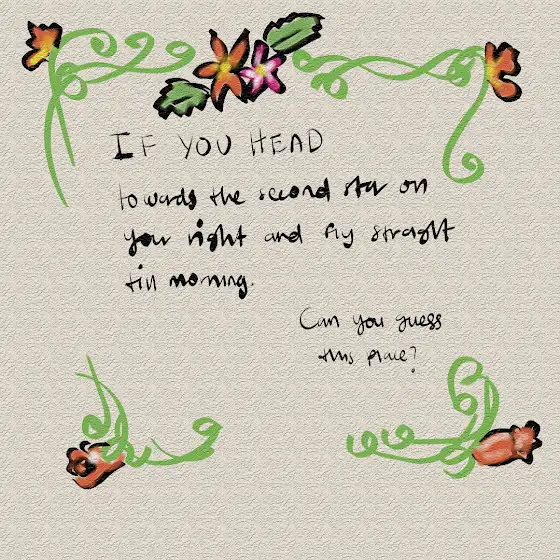 IF YOU HEAD
towards the second star on
your right and fly straight
till morning.
Can you guess
this place?